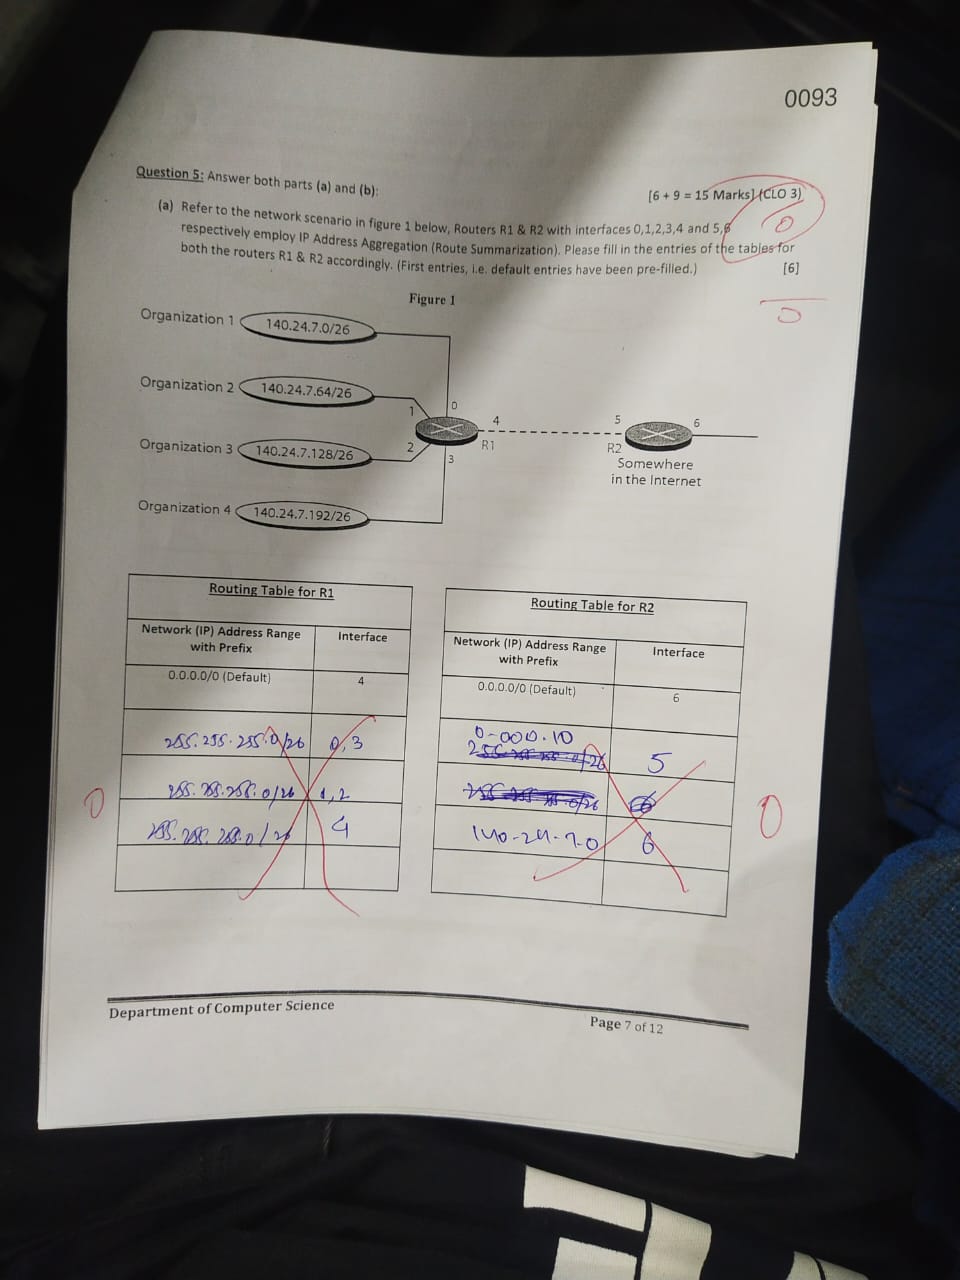 0093
Question 5: Answer both parts (a) and (b):
[6 + 9 = 15 Marks] (CLO 3)
0
(a) Refer to the network scenario in figure 1 below, Routers R1 & R2 with interfaces 0,1,2,3,4 and 5,6
respectively employ IP Address Aggregation (Route Summarization). Please fill in the entries of the tables for
both the routers R1 & R2 accordingly. (First entries, i.e. default entries have been pre-filled.)
[6]
0
Figure 1
Organization 1 140.24.7.0/26
Organization 2 140.24.7.64/26
Organization 3 140.24.7.128/26
Organization 4 140.24.7.192/26
0
1
2
3
4
R1
5
6
R2
Somewhere
in the Internet
Routing Table for R1
Network (IP) Address Range
with Prefix
Interface
0.0.0.0/0 (Default) 4
255.255.255.0/26 0,3
255.255.255.0/26 1,2
255.255.255.0/26 4
0
Routing Table for R2
Network (IP) Address Range
with Prefix
Interface
0.0.0.0/0 (Default) 6
5
140-24-7-0 6
0
Department of Computer Science
Page 7 of 12